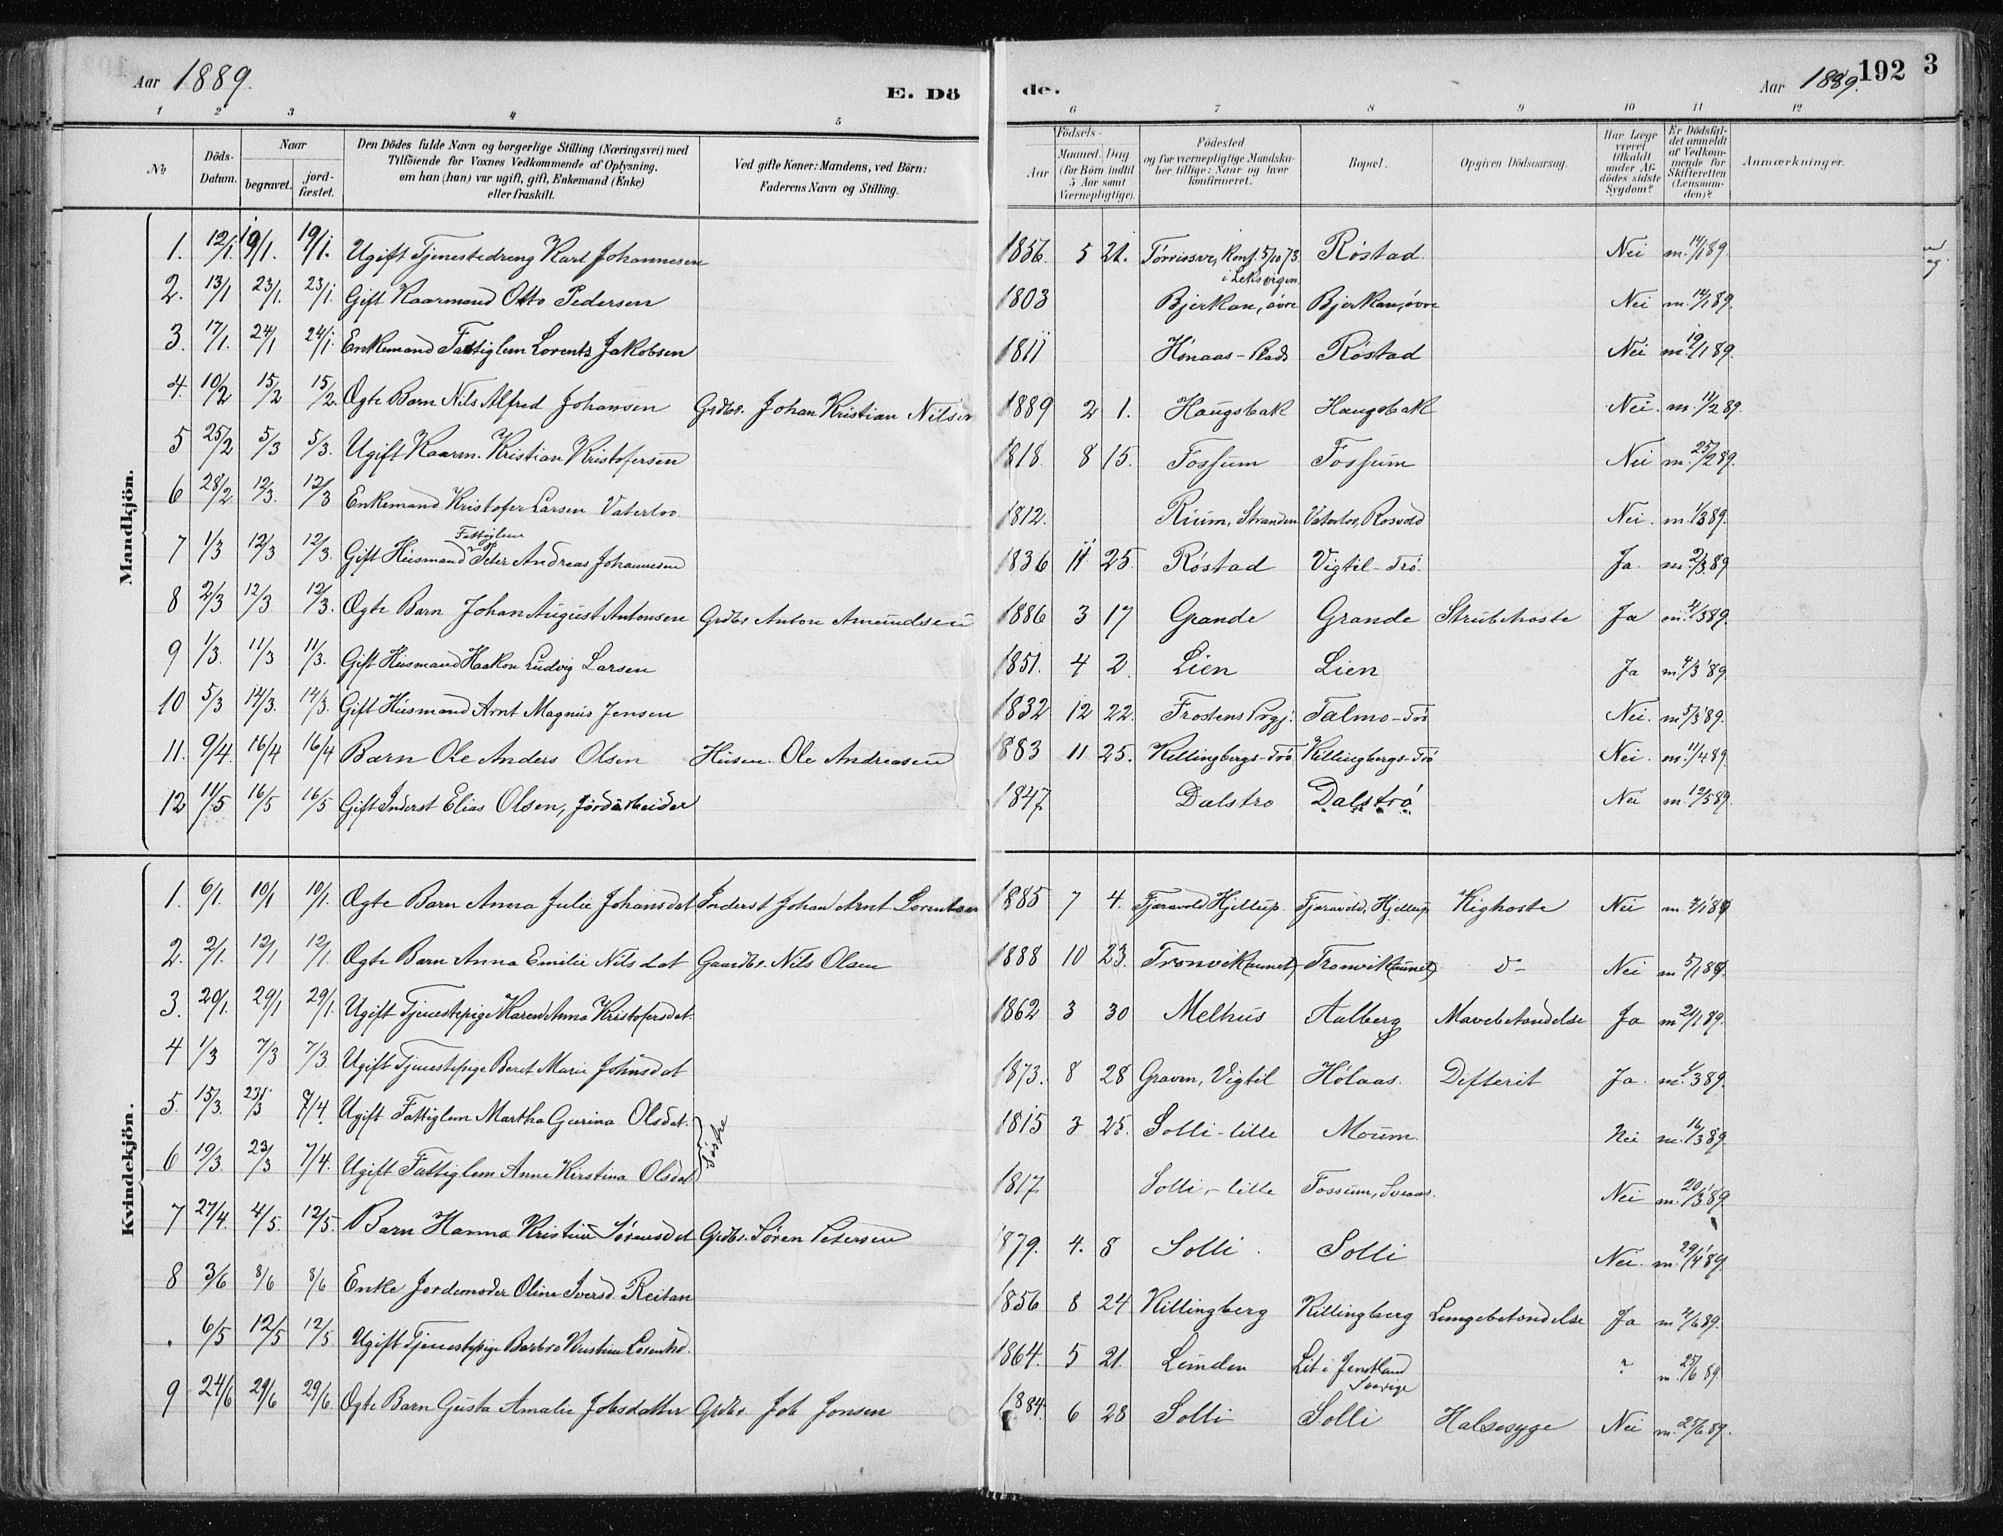 Aar 1889. E. Dö de. Aar 1889. 192 3
1 2 3 4 5 6 7 8 9 10 11 12
No. Döds-Datum. Naar begravet. jordfæstet. Den Dödes fulde Navn og borgerlige Stilling (Næringsvei) med Tilföiende for Voxnes Vedkommende af Oplysning, om han (hun) var ugift, gift, Enkemand (Enke) eller fraskilt. Ved gifte Koner: Mandens, ved Börn: Faderens Navn og Stilling. Födsels- Aar Maaned. Dag. (for Börn indtil 5 Aar samt Værnepligtige). Födested og for værnepligtige Mandskaber tillige: Naar og hvor konfirmeret. Bopæl. Opgiven Dödsaarsag. Har Læge været tilkaldt under Afdödes sidste Sygdom? Er Dödsfaldet anmeldt af Vedkommende for Skifteretten (Lensmanden)? Anmærkninger.
Mandkjön.
1. 12/1 19/1. 19/1. Ugift Tjenestedreng Karl Johannesen 1856. 5 21. Konf. 5/10 73 i Leksvigen Röstad Nei m. 14/1 89.
2. 13/1 23/1. 23/1. Gift Kaarmand Otto Pedersen 1803 Bjerkan, övre Bjerkan, övre Nei m. 14/1 89.
3. 17/1. 24/1 24/1. Enkemand Fattiglem Lorents Jakobsen 1811 Hönaas-Plads Röstad Nei m. 19/1 89.
4. 10/2 15/2 15/2. Ægte Barn Nils Alfred Johansen Grdbr. Johan Kristian Nilsen 1889 2 1. Haugsbak Haugsbak Nei. m. 11/2 89.
5 25/2 5/3 5/3. Ugift Kaarm. Kristian Kristofersen 1818. 8 15. Fossum Fossum Nei m. 25/2 89.
6 28/2 12/3. 12/3 Enkemand Kristofer Larsen Vaterloo. 1812. Rium, Stranden Vaterloo, Rosvold Nei. m. 1/3 89.
7 1/3 12/3 12/3. Gift Husmand Fattiglem Peter Andreas Johannesen 1836 11 25. Röstad Vigtil-Trö. Ja. m. 2/3 89
8 2/3 12/3 12/3. Ægte Barn Johan August Antonsen Grdbr Anton Amundsen 1886 3 17 Grande Grande Strubehoste Ja m. 4/3 89.
9 1/3. 11/3 11/3. Gift Husmand Haakon Ludvig Larsen 1851. 4 2. Lien Lien Ja m. 4/3 89.
10 5/3 14/3. 14/3. Gift Husmand Arnt Magnus Jensen 1832 12 22. Frostens Prgj. Talmo-Trö Nei. m. 5/3 89.
11. 9/4. 16/4 16/4 Barn Ole Anders Olsen Husm. Ole Andreasen 1883 11 25. Killingbergs-Trö Killingbergs-Trö Nei. m. 11/4 89.
12 11/5 16/5 16/5 Gift Inderst Elias Olsen, Jordarbeider 1847. Dalströ Dalströ. Nei m. 12/5 89.
Kvindekjön.
1. 6/1. 10/1 10/1. Ægte Barn Anna Julie Johansdat Inderst Johan Arnt Lorentsen 1885 7 4. Fjæravold Hjellup. Fjæravold, Hjellup Kighoste Nei m. 7/1 89
2. 2/1. 12/1 12/1. Ægte Barn Anna Emilie Nilsdat Gaardbr. Nils Olsen 1888 10 23. Tronvik (aunet) Tronvik (aunet) D- Nei m 5/1 89.
3. 20/1. 29/1 29/1. Ugift Tjenestepige Karen Anna Kristofersdat. 1862 3 30 Melhus Aalberg Mavebetændelse Ja m 21/1 89.
4 1/3 7/3 7/3. Ugift Tjenestepige Beret Marie Johnsdat 1873. 8 28 Graven, Vigtil Hölaas. Difterit Ja. m. 4/3 89.
5. 15/3. 23/3 7/4. Ugift Fattiglem Martha Gurina Olsdat. 1815 3 25. Solli-lille Moum. Nei m. 16/3 89.
Søstre
6 19/3. 23/3 7/4. Ugift Fattiglem Anne Kirstina Olsdat 1817 Solli-lille Fossum, Nei m. 20/3 89
7 27/4. 4/5. 12/5. Barn Hanna Kristine Sørensdat Grdbr. Søren Petersen 1879. 4. 8 Solli. Solli Nei. m. 29/4 89.
8 3/6 8/6 8/6 Enke Jordemoder Oline Iversd. Reitan 1856 8 24 Killingberg Killingberg Lungebetændelse Ja m 4/6 89.
. 6/5 12/5 12/5 Ugift Tjenestepige Barbro Kristine Lorentsd. 1864. 5 21. Lunden Lit i Jemtland Sverige ? m. 25/6 89.
9 24/6 29/6 29/6 Ægte Barn Gusta Amalie Jobsdatter Grdbr. Job Jonsen 1884. 6 28 Solli Solli Halssyge Nei m. 25/6 89.